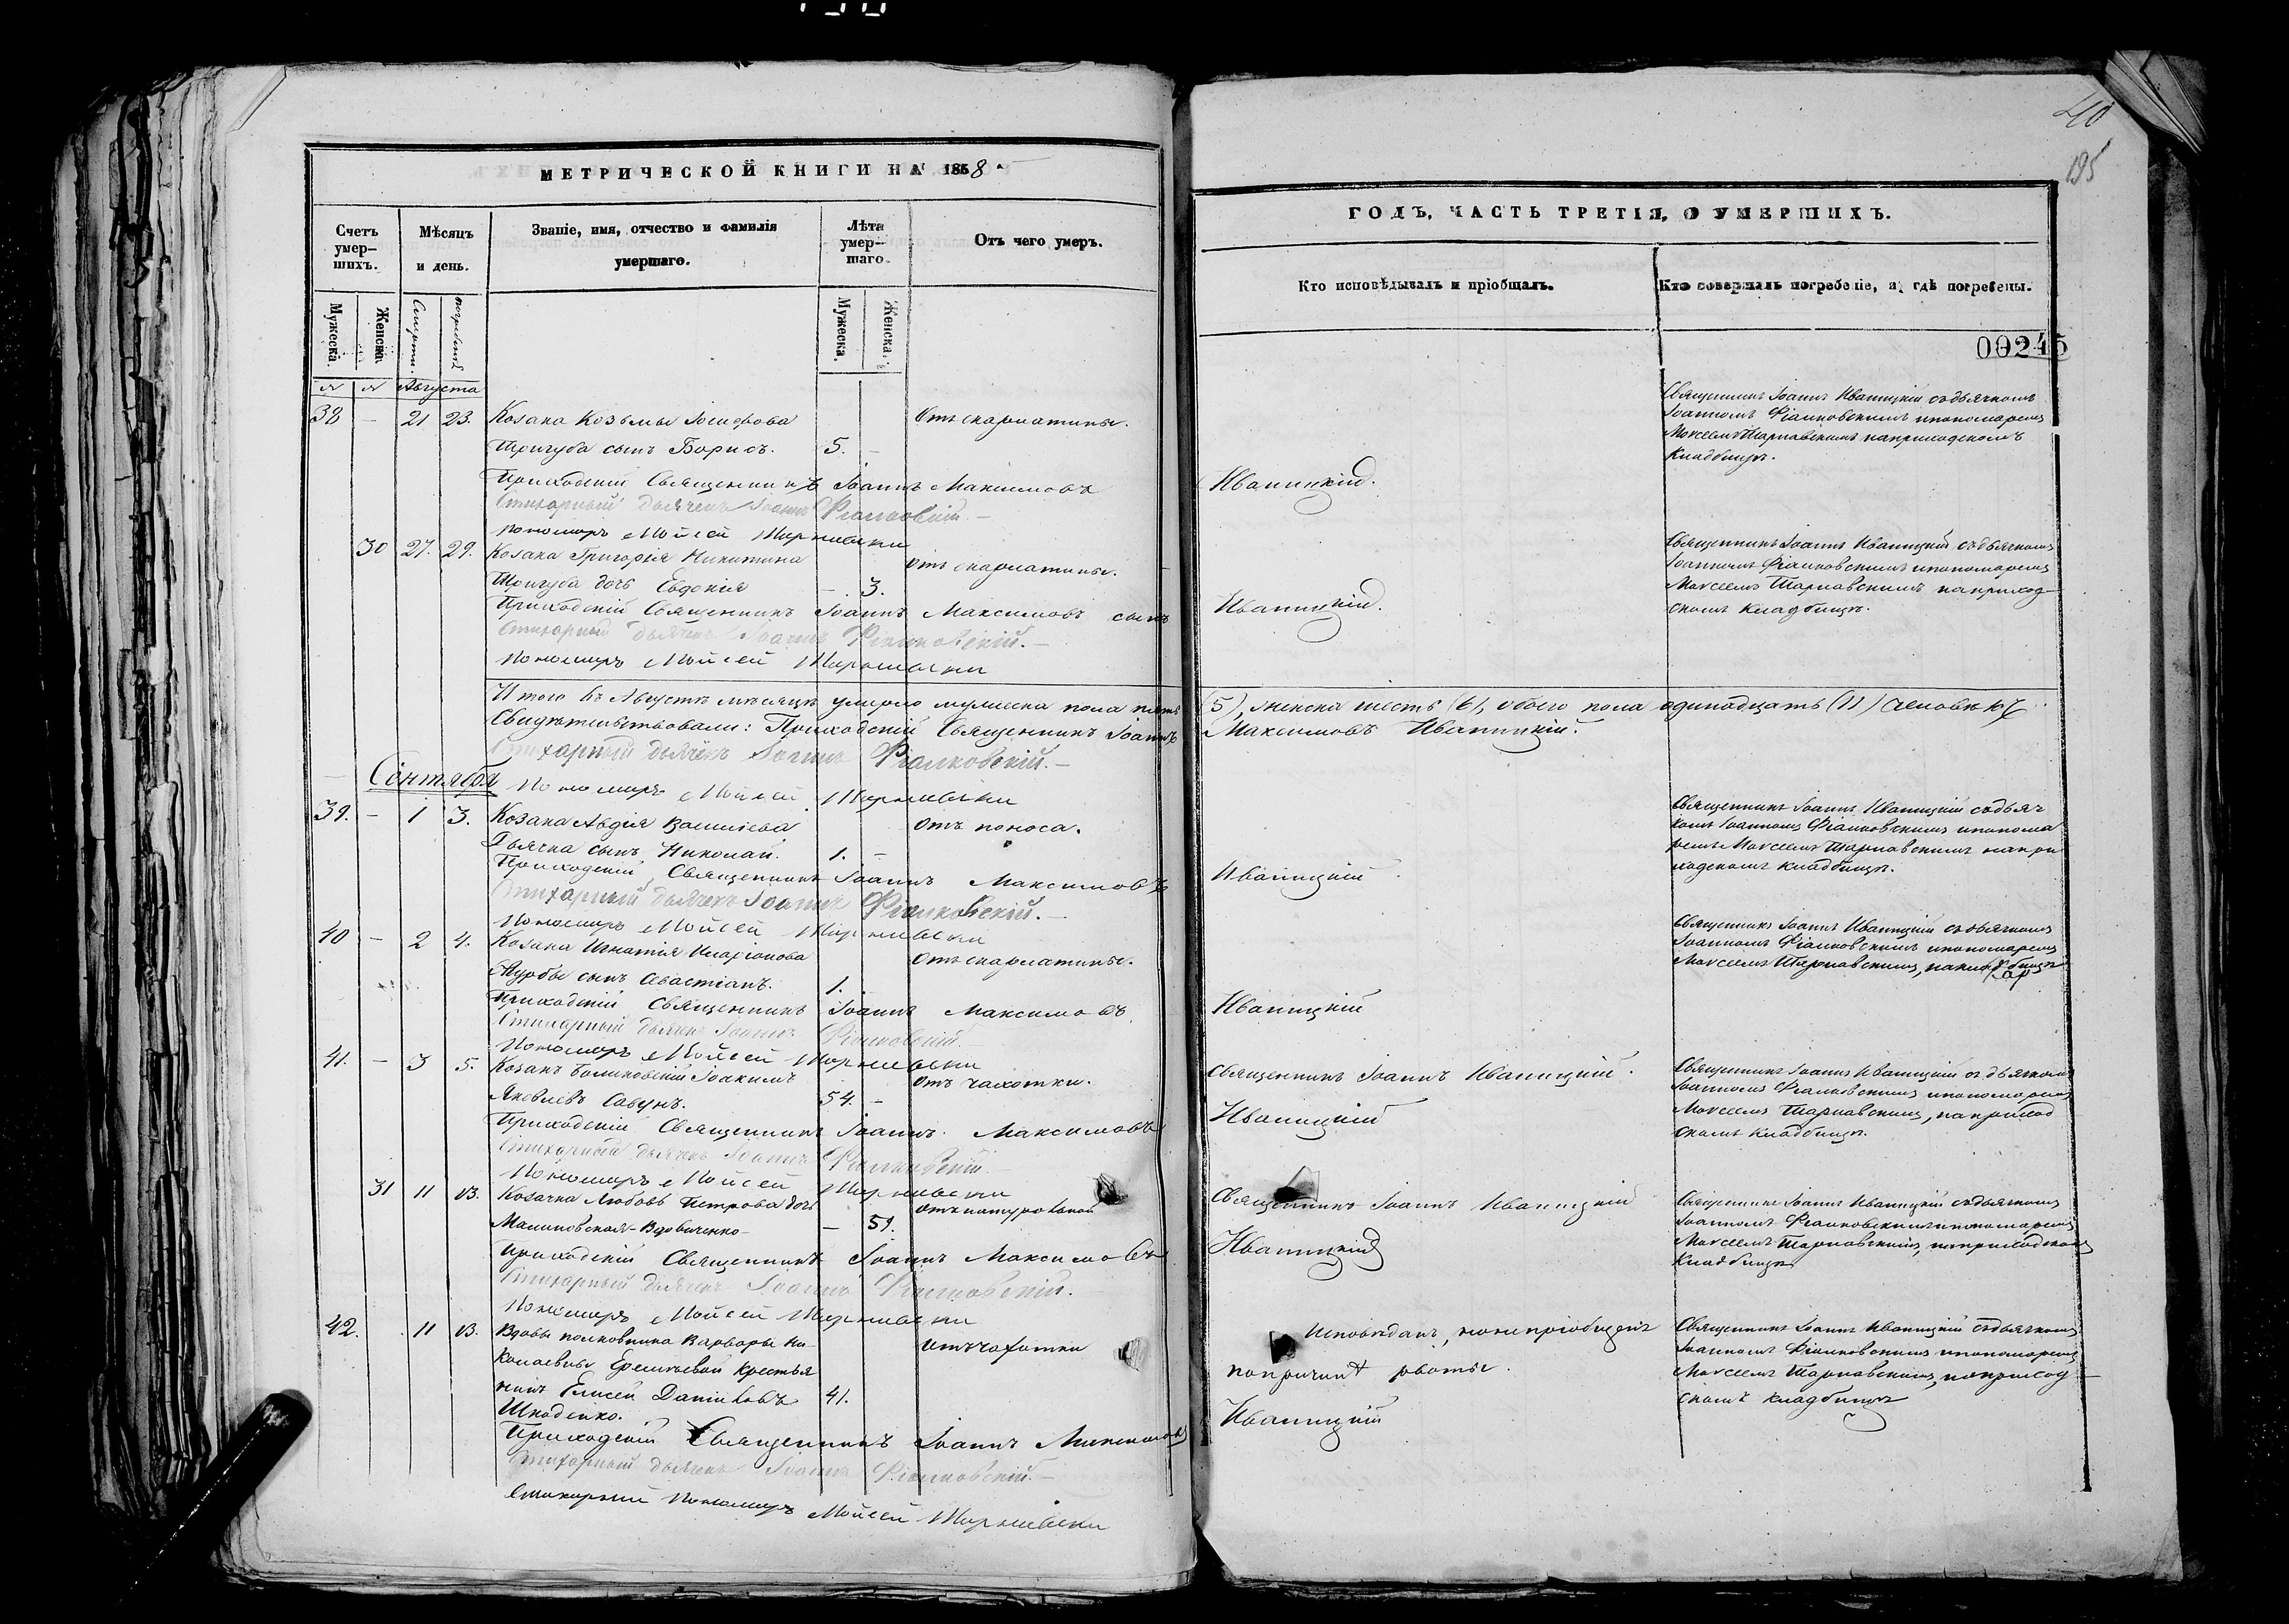 40
195
МЕТРИЧЕСКОЙ КНИГИ НА 1858
Счетъ умер- шихъ.
Мѣсяцъ и день.
Званіе, имя, отчество и фамилія умершаго.
Лѣта умер- шаго.
Отъ чего умеръ.
Мужеска.
Женска.
Смерти.
погребенія
Мужеска.
Женска.
Августа
38 - 21 23. Козака Козьмы Іосифова Отъ скарлатины.
Пригуба сынъ Борисъ. 5. -
Приходскій Священникъ Іоаннъ Максимовъ
Стихарный дьячекъ Іоаннъ Фіалковскій.
Пономарь Мойсей
30 27. 29. Козака Григорія Никитина отъ скарлатины.
Пригуба дочь Евдокія - 3.
Приходскій Священникъ Іоаннъ Максимовъ сынъ
Стихарный дьячекъ Іоаннъ Фіалковскій.
Пономарь Мойсей
Итого въ Августѣ мѣсяцѣ умерло мужеска пола пять
Свидѣтельствовали: Приходскій Священникъ Іоаннъ
Стихарный дьячекъ Іоаннъ Фіалковскій.
Сентября
Пономарь Мойсей
39. - 1 3. Козака Авдія Василіева Отъ поноса.
Дьячка сынъ Николай. 1. -
Приходскій Священникъ Іоаннъ Максимовъ
Стихарный дьячекъ Іоаннъ Фіалковскій.
Пономарь Мойсей
40 - 2 4. Козака Игнатія Иларіонова Отъ скарлатины.
сынъ Севастіанъ. 1.
Приходскій Священникъ Іоаннъ Максимовъ
Стихарный дьячекъ Іоаннъ Фіалковскій.
Пономарь Мойсей
41. - 3 5. Козакъ Іоакимъ Отъ чахотки.
Яковлевъ Савунъ. 54. -
Приходскій Священникъ Іоаннъ Максимовъ
Стихарный дьячекъ Іоаннъ Фіалковскій.
Пономарь Мойсей
31 11 13. Козачка Любовь Петрова дочь
Малиновская-Вдовиченко - 51.
Приходскій Священникъ Іоаннъ Максимовъ
Стихарный дьячекъ Іоаннъ Фіалковскій.
Пономарь Мойсей
42. 11 13. Вдовы полковника Варвары Ни- отъ чахотки
колаевны Еремѣевой крестья
нинъ Елисей Даніиловъ 41.
Шкоденко.
Приходскій Священникъ Іоаннъ Максимовъ
Стихарный дьячекъ Іоаннъ Фіалковскій.
Стихарный Пономарь Мойсей
ГОДЪ, ЧАСТЬ ТРЕТІЯ, О УМЕРШИХЪ.
Кто исповѣдывалъ и пріобщалъ.
Кто совершалъ погребеніе, и гдѣ погребены.
00245
Священникъ Іоаннъ Иваницкій съ дьячкомъ
Іоанномъ Фіалковскимъ и пономаремъ
Моисеемъ Тарнавскимъ на приходскомъ
кладбищѣ.
Иваницкій.
Священникъ Іоаннъ Иваницкій съ дьячкомъ
Іоанномъ Фіалковскимъ и пономаремъ
Моисеемъ Тарнавскимъ на приход-
скомъ кладбищѣ.
Иваницкій.
(5), женска шесть (6), обоего пола одинадцать (11) человѣкъ
Максимовъ Иваницкій.
Священникъ Іоаннъ Иваницкій съ дьяч
комъ Іоанномъ Фіалковскимъ и понома
ремъ Моисеемъ Тарнавскимъ на при
ходскомъ кладбищѣ.
Иваницкій
Священникъ Іоаннъ Иваницкій съ дьячкомъ
Іоанномъ Фіалковскимъ и пономаремъ
Моисеемъ Тарнавскимъ, на кладбищѣ
Иваницкій
Священникъ Іоаннъ Иваницкій.
Священникъ Іоаннъ Иваницкій съ дьячкомъ
Іоанномъ Фіалковскимъ и пономаремъ
Моисеемъ Тарнавскимъ, на приход
скомъ кладбищѣ.
Иваницкій
Священникъ Іоаннъ Иваницкій
Священникъ Іоаннъ Иваницкій съ дьячкомъ
Іоанномъ Фіалковскимъ и пономаремъ
Моисеемъ Тарнавскимъ, на приходскомъ
кладбищѣ
Иваницкій
Исповѣданъ, но не пріобщенъ
по причинѣ рвоты.
Священникъ Іоаннъ Иваницкій съ дьячкомъ
Іоанномъ Фіалковскимъ и пономаремъ
Моисеемъ Тарнавскимъ, на приход
скомъ кладбищѣ
Иваницкій